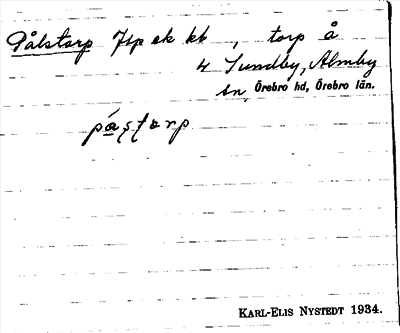 Pålstorp Jtp ek kb, torp å
4 Sundby, Almby
sn, Örebro hd, Örebro län.
påstorp
KARL-ELIS NYSTEDT 1934.